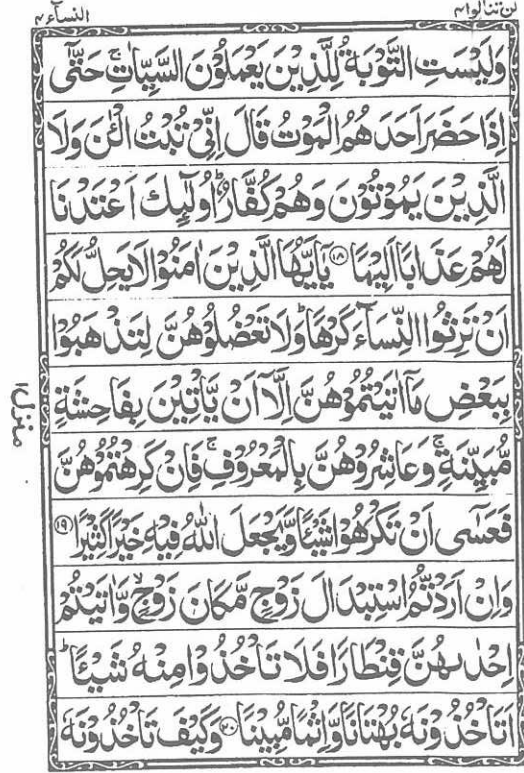 لن تنالوا ٤
النسآء ٤
وَلَيْسَتِ التَّوْبَةُ لِلَّذِيْنَ يَعْمَلُوْنَ السَّيِّاٰتِ ۚ حَتّٰۤى
اِذَا حَضَرَ اَحَدَهُمُ الْمَوْتُ قَالَ اِنِّىْ تُبْتُ الْـٰٔنَ وَلَا
الَّذِيْنَ يَمُوْتُوْنَ وَهُمْ كُفَّارٌ ؕ اُولٰٓئِكَ اَعْتَدْنَا
لَهُمْ عَذَابًا اَلِيْمًا ۝۱۸ يٰۤاَيُّهَا الَّذِيْنَ اٰمَنُوْا لَا يَحِلُّ لَكُمْ
اَنْ تَرِثُوا النِّسَآءَ كَرْهًا ؕ وَلَا تَعْضُلُوْهُنَّ لِتَذْهَبُوْا
بِبَعْضِ مَاۤ اٰتَيْتُمُوْهُنَّ اِلَّاۤ اَنْ يَّاْتِيْنَ بِفَاحِشَةٍ
مُّبَيِّنَةٍ ۚ وَعَاشِرُوْهُنَّ بِالْمَعْرُوْفِ ۚ فَاِنْ كَرِهْتُمُوْهُنَّ
فَعَسٰۤى اَنْ تَكْرَهُوْا شَيْـًٔا وَّيَجْعَلَ اللّٰهُ فِيْهِ خَيْرًا كَثِيْرًا ۝۱۹
وَاِنْ اَرَدْتُّمُ اسْتِبْدَالَ زَوْجٍ مَّكَانَ زَوْجٍ ۙ وَّاٰتَيْتُمْ
اِحْدٰىهُنَّ قِنْطَارًا فَلَا تَاْخُذُوْا مِنْهُ شَيْـًٔا ؕ
اَتَاْخُذُوْنَهٗ بُهْتَانًا وَّاِثْمًا مُّبِيْنًا ۝۲۰ وَكَيْفَ تَاْخُذُوْنَهٗ
منزل ۱